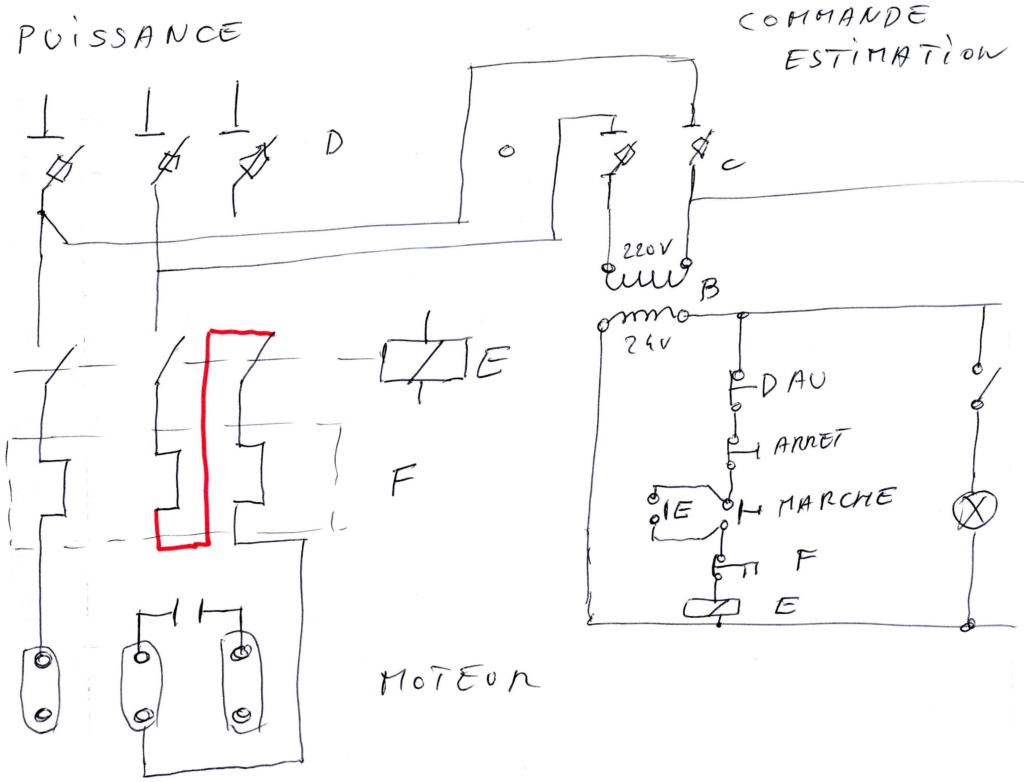 PUISSANCE
COMMANDE
ESTIMATION
D
C
220V
B
24V
E
DAU
ARRET
E
MARCHE
F
F
E
MOTEUR